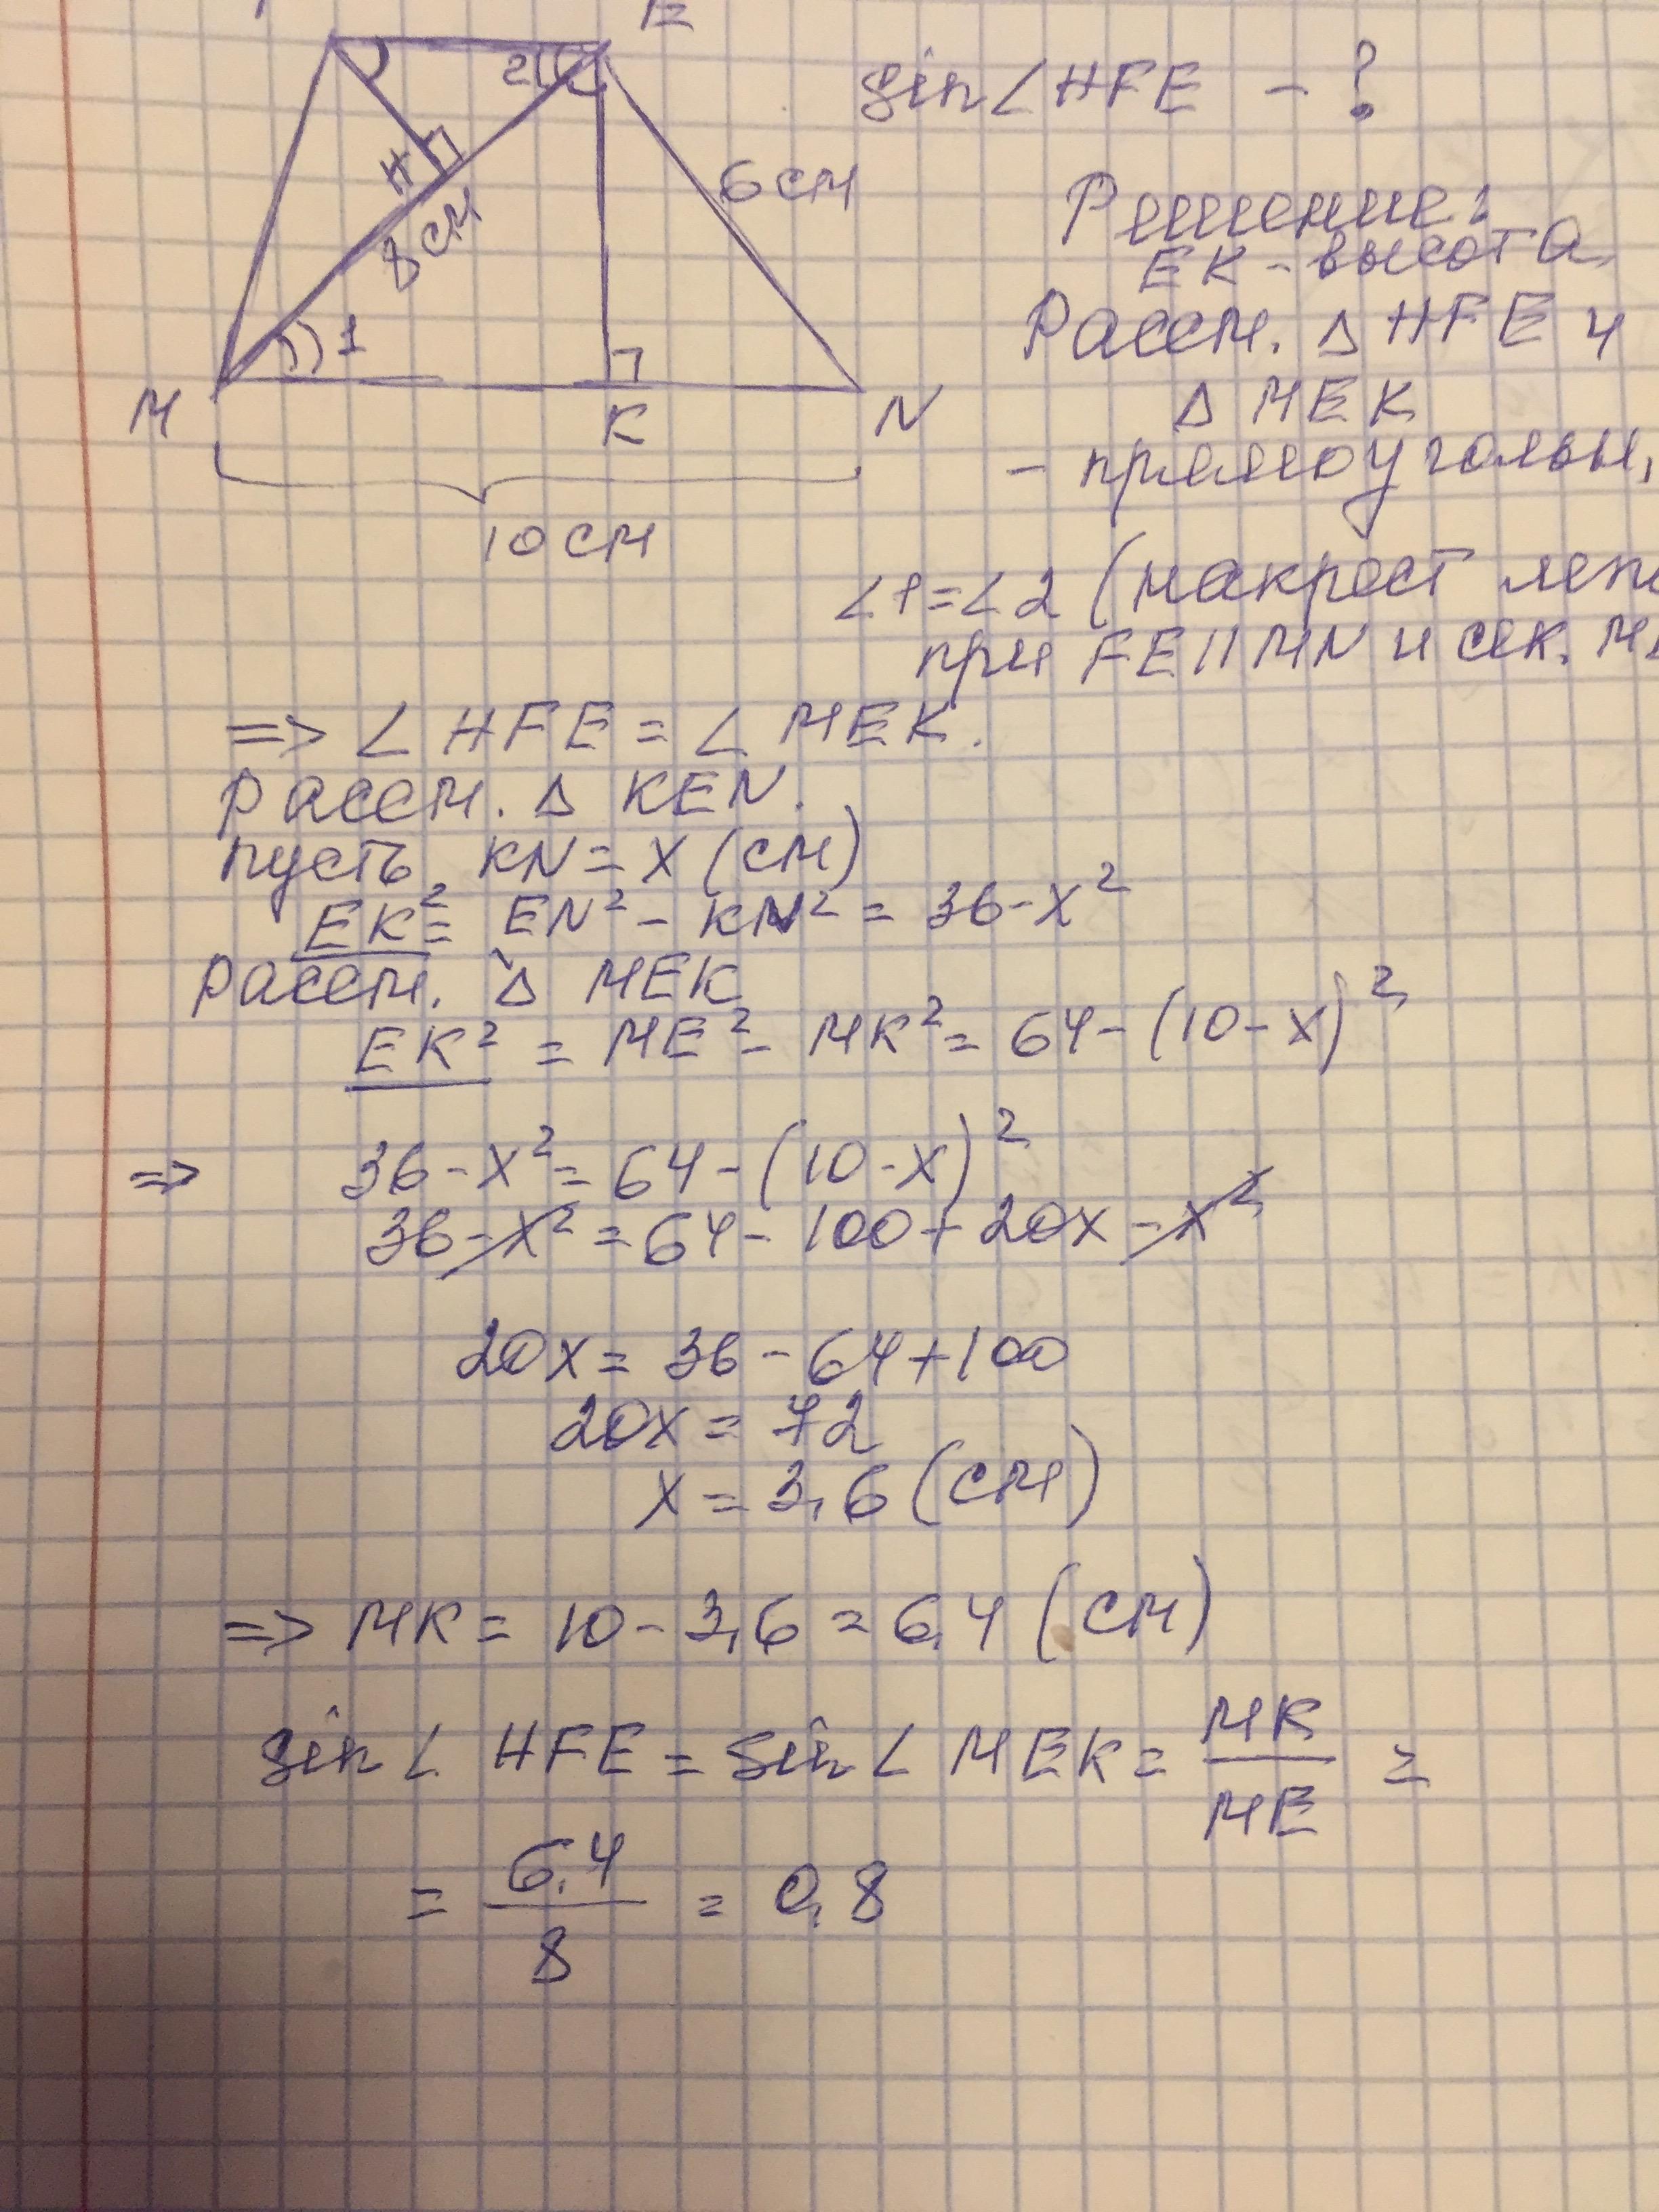 E
2
sin∠HFE - ?
H
8 см
6 см
Решение:
EK - высота
1
Рассм. Δ HFE и
Δ MEK
M
K
N
- прямоугольн,
10 см
∠1=∠2 (накрест леж
при FE || MN и сек. M
=> ∠ HFE = ∠ MEK.
Рассм. Δ KEN.
пусть KN = x (см)
EK² = EN² - KN² = 36 - x²
Рассм. Δ MEK
EK² = ME² - MK² = 64 - (10 - x)²
=> 36 - x² = 64 - (10 - x)²
36 - x² = 64 - 100 + 20x - x²
20x = 36 - 64 + 100
20x = 72
x = 3,6 (см)
=> MK = 10 - 3,6 = 6,4 (см)
sin∠ HFE = sin∠ MEK = MK/ME =
= 6,4/8 = 0,8